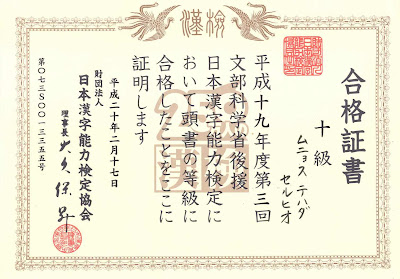 漢検
合格証書
十級
ムニョス テハダ
セルヒオ
平成十九年度第三回
文部科学省後援
日本漢字能力検定に
おいて頭書の等級に
合格したことをここに
証明します
平成二十年二月十七日
財団法人
日本漢字能力検定協会
理事長 大久保 昇
第〇七三〇〇〇一三三五五号